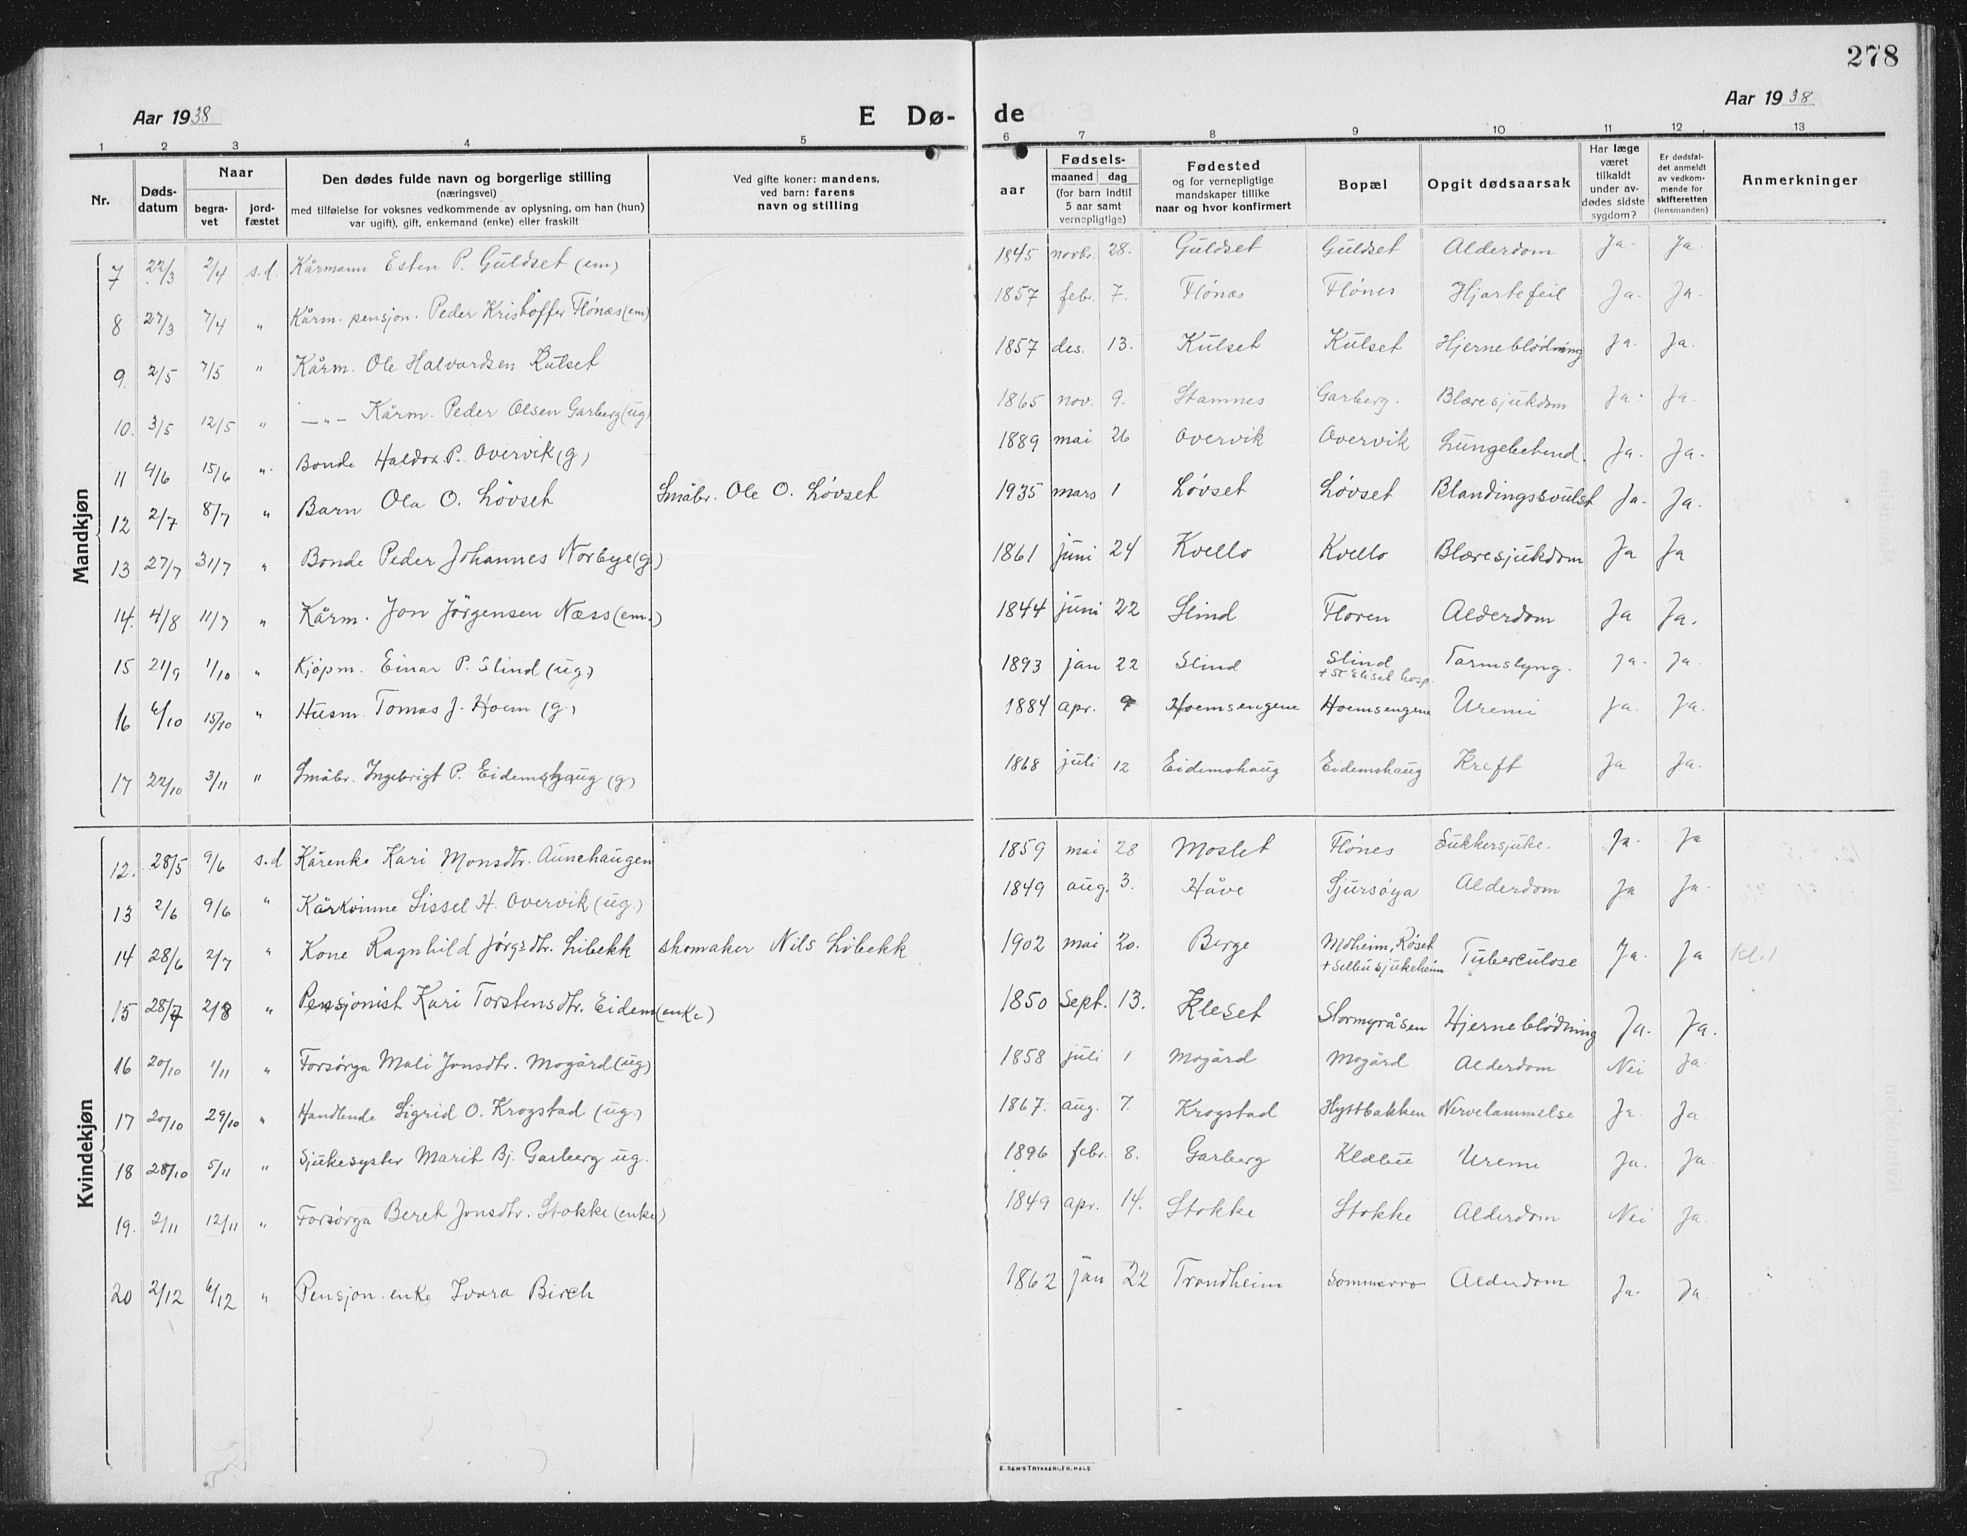 278
Aar 1938
E Dø- de
Aar 1938
1 2 3 4 5 6 7 8 9 10 11 12 13
Nr.
Døds-
datum
Naar
begra-
vet
jord-
fæstet
Den dødes fulde navn og borgerlige stilling
(næringsvei)
med tilføielse for voksnes vedkommende av oplysning, om han (hun)
var ugift), gift, enkemand (enke) eller fraskilt
Ved gifte koner: mandens,
ved barn: farens
navn og stilling
aar
Fødsels-
maaned dag
(for barn indtil
5 aar samt
vernepligtige)
Fødested
og for vernepligtige
mandskaper tillike
naar og hvor konfirmert
Bopæl
Opgit dødsaarsak
Har læge
været
tilkaldt
under av-
dødes sidste
sygdom?
Er dødsfal-
det anmeldt
av vedkom-
mende for
skifteretten
(lensmanden)
Anmerkninger
Mandkjøn
7 22/3 2/4 s.d. Kårmann Esten P. Guldset (em) 1845 novbr. 28. Guldset Guldset Alderdom Ja. Ja.
8 27/3 7/4 " Kårm. pensjon. Peder Kristoffer Flønæs (em) 1857 febr. 7. Flønæs Flønes Hjartefeil Ja. Ja.
9. 2/5 7/5 " Kårm. Ole Halvardsen Kulset 1857 des. 13. Kulset Kulset Hjerneblødning Ja. Ja.
10. 3/5 12/5 " —"— Kårm. Peder Olsen Garberg (ug) 1865 nov. 9. Stamnes Garberg. Blæresjukdom Ja. Ja.
11 4/6 15/6 " Bonde Haldor P. Overvik (g) 1889 mai 26 Overvik Overvik Lungebetend. Ja. Ja.
12 2/7 8/7 " Barn Ola O. Løvset Småbr. Ole O. Løvset 1935 mars 1 Løvset Løvset Blandingssvulst Ja. Ja.
13 27/7 31/7 " Bonde Peder Johannes Norbye (g) 1861 juni 24 Kvello Kvello Blæresjukdom Ja Ja
14. 4/8 11/7 " Kårm. Jon Jørgensen Næss (em.) 1844 juni 22 Slind Floren Alderdom Ja Ja.
15 21/9 1/10 " Kjøpm. Einar P. Slind (ug) 1893 jan 22 Slind Slind Tarmslyng. Ja. Ja.
+ St. Elisab. hosp.
16 6/10 15/10 " Husm. Tomas J. Hoem (g.) 1884 apr. 9 Hoemsengene Hoemsengene Uremi Ja. Ja.
17 22/10 3/11 " Småbr. Ingebrigt P. Eidemshaug (g) 1868 juli 12 Eidemshaug Eidemshaug Kreft Ja Ja.
Kvindekjøn
12. 28/5 9/6 s.d Kårenke Kari Monsdtr. Aunehaugen 1859 mai 28 Moslet Flønes Sukkersjuke. Ja. Ja
13 2/6 9/6 " Kårkvinne Sissel H. Overvik (ug.) 1849 aug. 3. Håve Sjursøya Alderdom Ja Ja.
14 28/6 2/7 " Kone Ragnhild Jørgsdtr. Libekk skomaker Nils Libekk 1902 mai 20. Berge Moheim, Røset Tuberculose Ja. Ja kl. 1
+ Selbu sjukeheim
15 28/7 2/8 " Pensjonist Kari Torstensdtr. Eidem (enke) 1850 sept. 13. Kleset Stormyråsen Hjerneblødning Ja. Ja.
16 20/10 1/11 " Forsørga Mali Jonsdtr. Mogård (ug) 1858 juli 1 Mogård Mogård Alderdom Nei Ja.
17 20/10 29/10 " Handlende Sigrid O. Krogstad (ug.) 1867. aug. 7. Krogstad Hyttbakken Nervelammelse Ja. Ja.
18 28/10 5/11 " Sjukesyster Marit Bj. Garberg ug. 1896 febr. 8. Garberg Klæbu Uremi Ja. Ja.
19. 2/11 12/11 " Forsørga Beret Jonsdtr. Stokke (enke) 1849 apr. 14. Stokke Stokke Alderdom Nei Ja.
20 2/12 6/12 " Pensjon. enke Ivara Birch 1862 jan 22 Trondheim Sommerro Alderdom Ja. Ja.
E. SEM'S TRYKKERI, FR.HALD